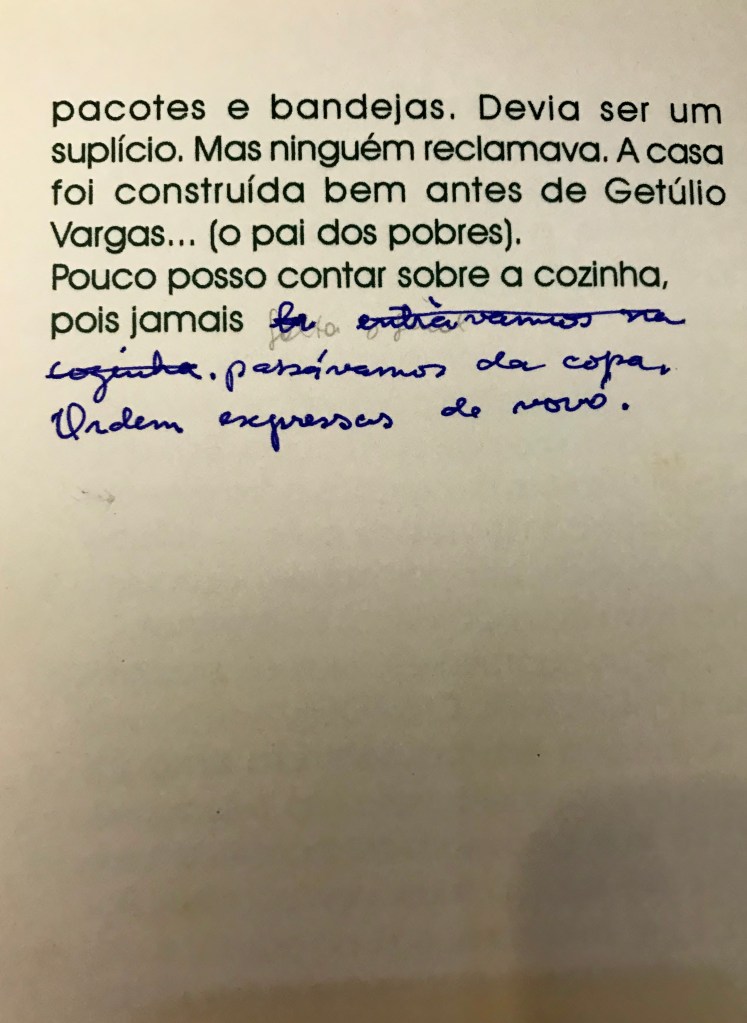 pacotes e bandejas. Devia ser um
suplício. Mas ninguém reclamava. A casa
foi construída bem antes de Getúlio
Vargas... (o pai dos pobres).
Pouco posso contar sobre a cozinha,
pois jamais entràvamos na
cozinha. passávamos da copa.
Ordem expressas de vovó.